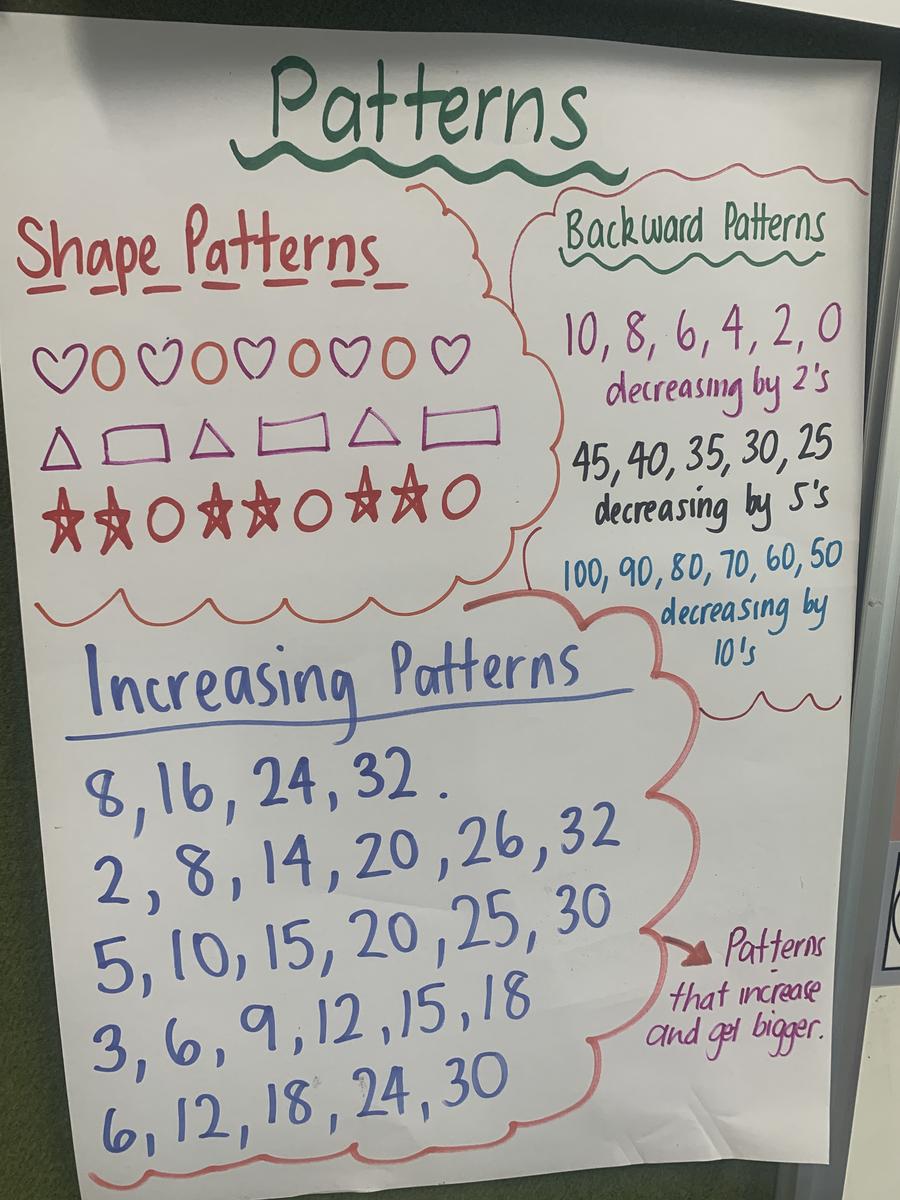 Patterns
Shape Patterns
Backward Patterns
10, 8, 6, 4, 2, 0
decreasing by 2's
45, 40, 35, 30, 25
decreasing by 5's
100, 90, 80, 70, 60, 50
decreasing by
10's
Increasing Patterns
8, 16, 24, 32.
2, 8, 14, 20, 26, 32
5, 10, 15, 20, 25, 30
3, 6, 9, 12, 15, 18
6, 12, 18, 24, 30
Patterns
that increase
and get bigger.